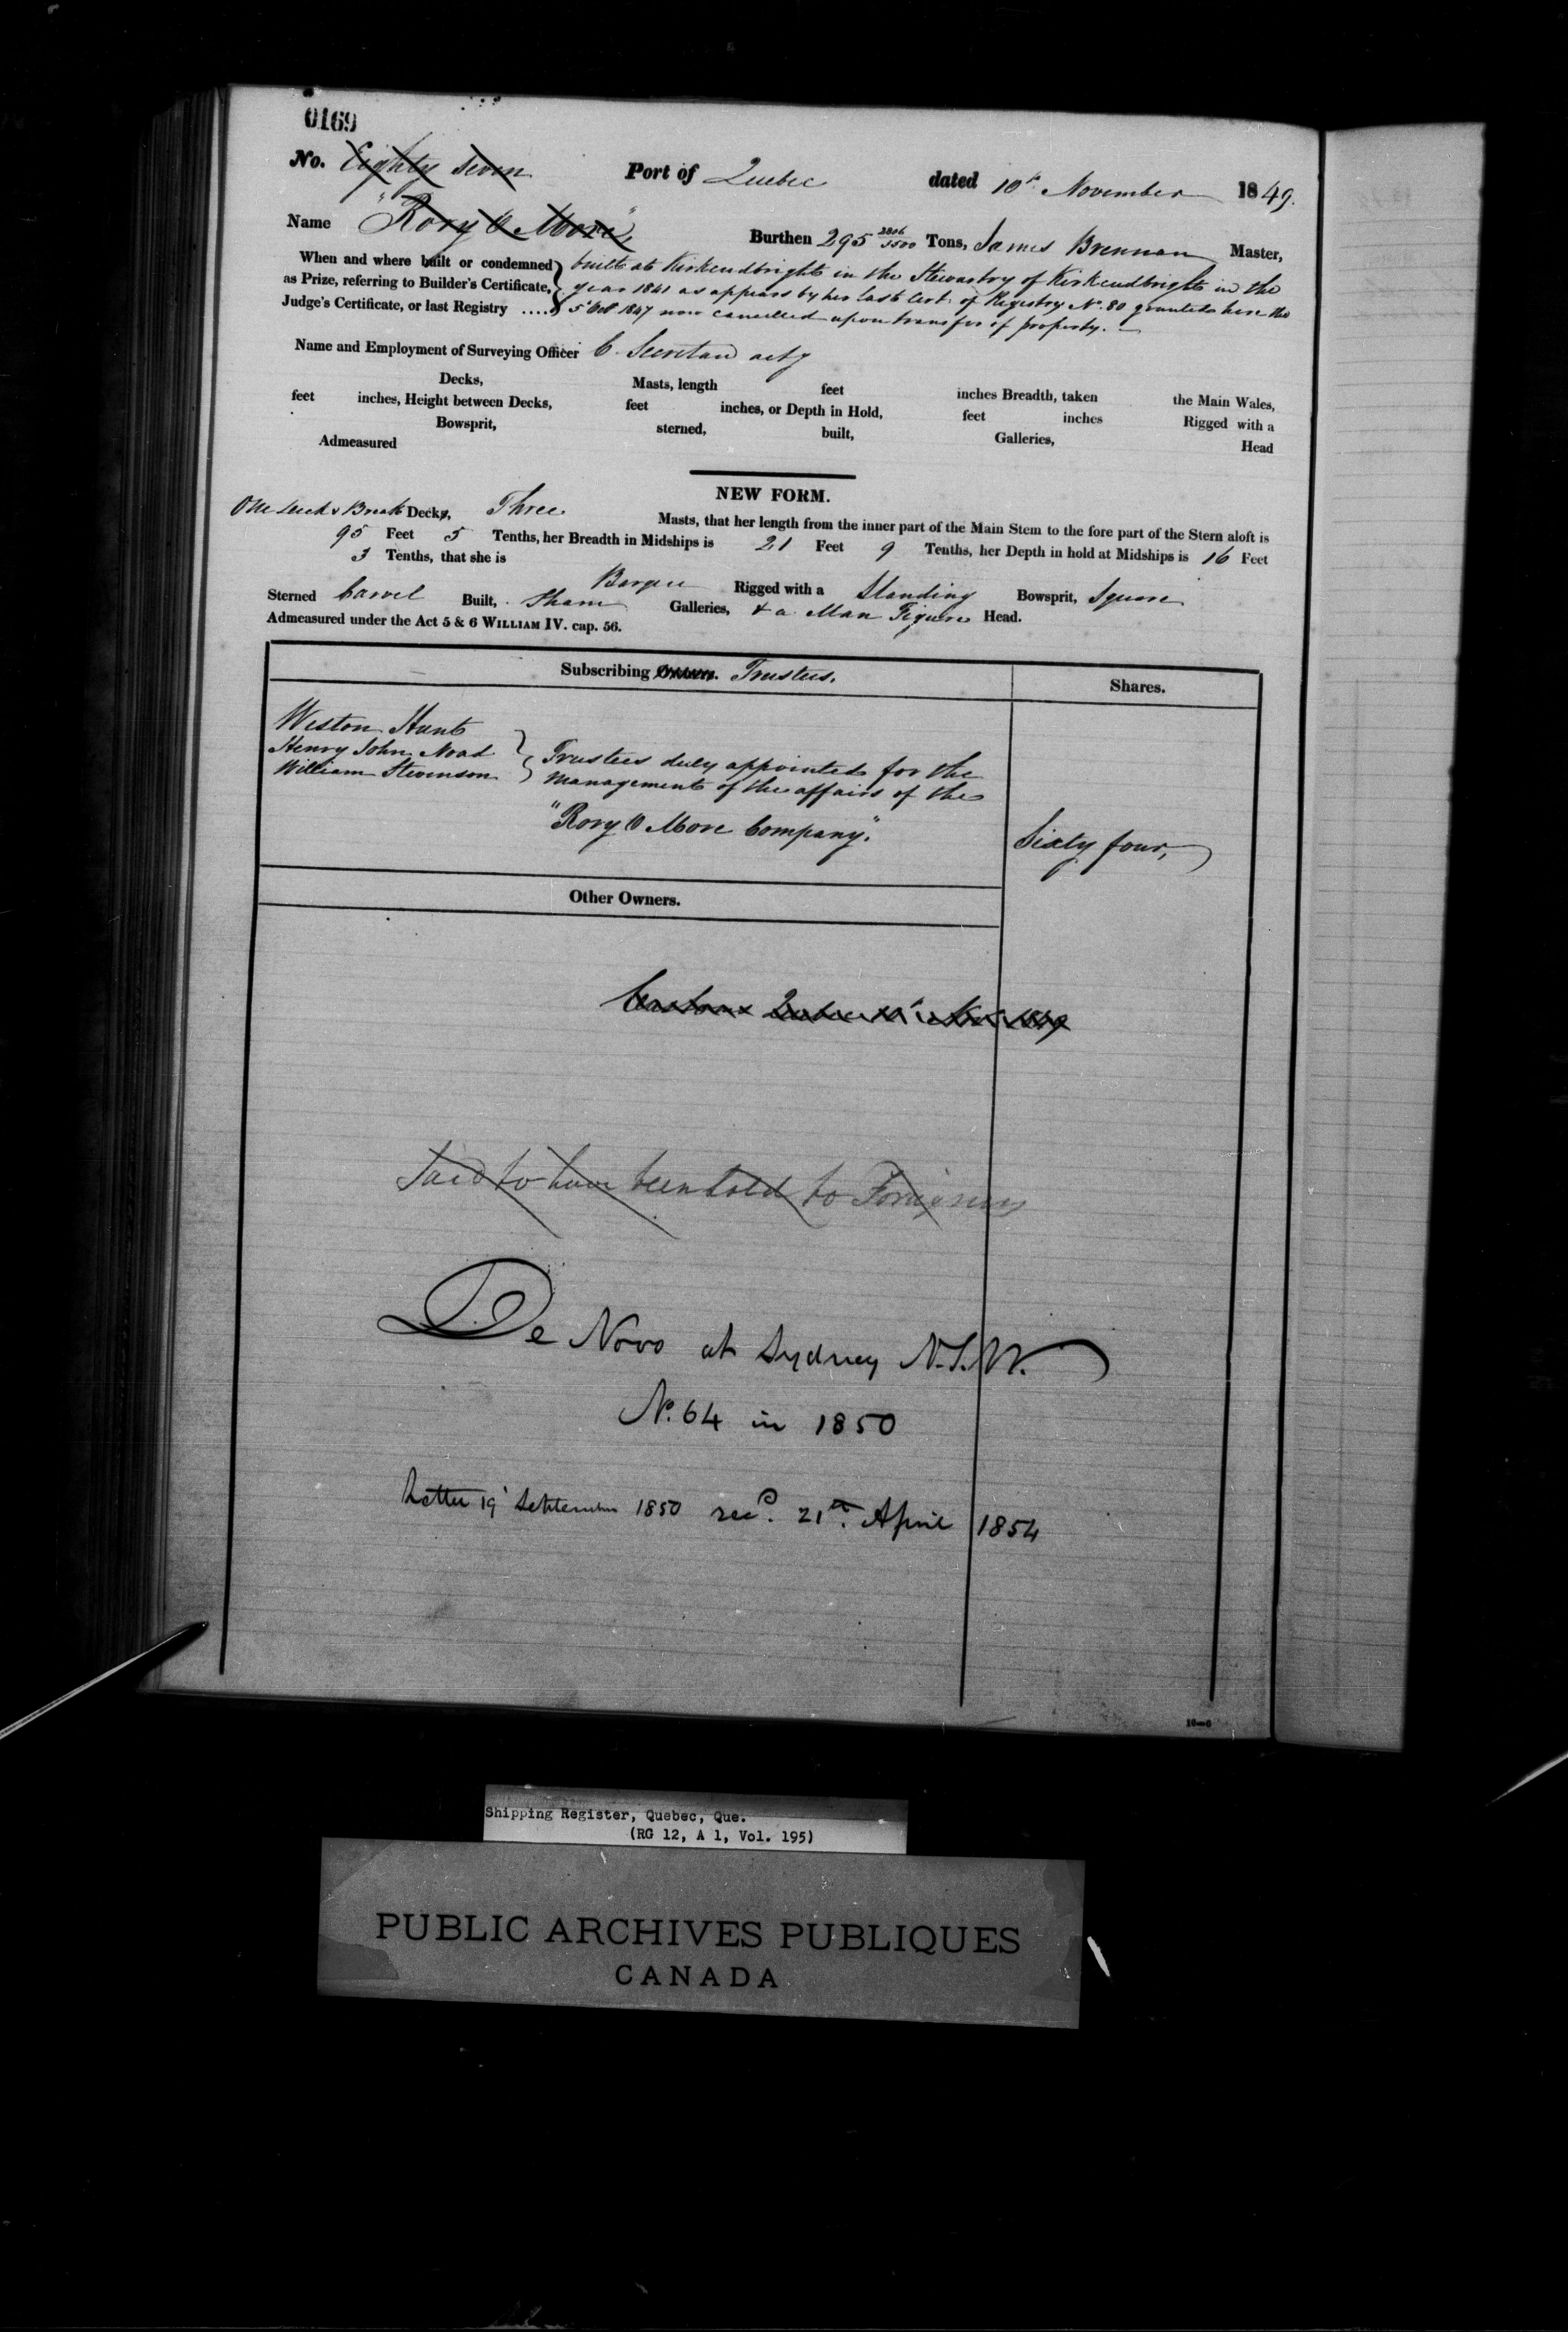 0169
No. Eighty Seven Port of Quebec dated 10th November 1849.
Name "Rory O More" Burthen 295 2806/3500 Tons, James Brennan Master,
When and where built or condemned as Prize, referring to Builder's Certificate, Judge's Certificate, or last Registry ....
built at Kirkcudbright in the Stewartry of Kirkcudbright in the
year 1841 as appears by her last Cert. of Registry No. 80 granted here the
5 Oct 1847 now cancelled upon transfer of property.
Name and Employment of Surveying Officer C. Secretan actg
Decks, Masts, length feet inches Breadth, taken the Main Wales,
feet inches, Height between Decks, feet inches, or Depth in Hold, feet inches Rigged with a
Bowsprit, sterned, built, Galleries, Head
Admeasured
NEW FORM.
One Deck & Break Decks, Three Masts, that her length from the inner part of the Main Stem to the fore part of the Stern aloft is
95 Feet 5 Tenths, her Breadth in Midships is 21 Feet 9 Tenths, her Depth in hold at Midships is 16 Feet
3 Tenths, that she is Barque Rigged with a Standing Bowsprit, Square
Sterned Carvel Built, Sham Galleries, & a Man Figure Head.
Admeasured under the Act 5 & 6 WILLIAM IV. cap. 56.
Subscribing Owners. Trustees. Shares.
Weston Hunt
Henry John Noad
William Stevenson
Trustees duly appointed for the
management of the affairs of the
"Rory O More Company." Sixty four,
Other Owners.
Said to have been sold to Foreigners
De Novo at Sydney N.S.W.
No. 64 in 1850
Letter 19 September 1850 recd. 21st. April 1854
10—6
Shipping Register, Quebec, Que.
(RG 12, A 1, Vol. 195)
PUBLIC ARCHIVES PUBLIQUES
CANADA